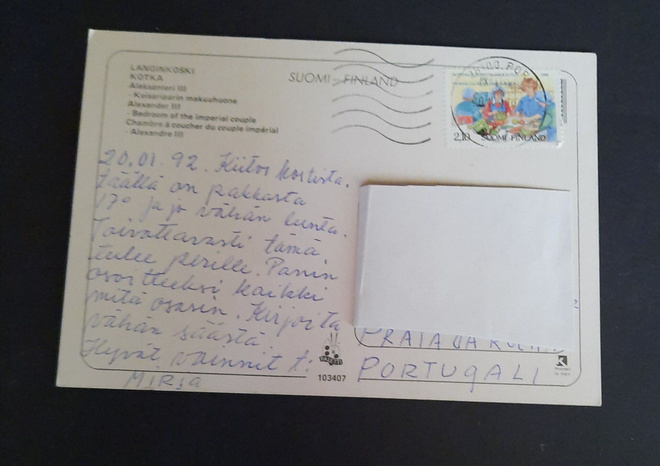 LANGINKOSKI
KOTKA
Aleksanteri III
- Keisariparin makuuhuone
Alexander III
- Bedroom of the imperial couple
Chambre à coucher du couple impérial
- Alexandre III
SUOMI - FINLAND
2,10 SUOMI FINLAND
20.01.92. Kiitos kortista.
Täällä on pakkasta
17° ja jo vähän lunta.
Toivottavasti tämä
tulee perille. Panin
osoitteeksi kaikki
mitä osasin. Kirjoita
vähän säästä.
Hyvät voinnit t.
Mirja
103407
PRAIA DA
PORTUGALI